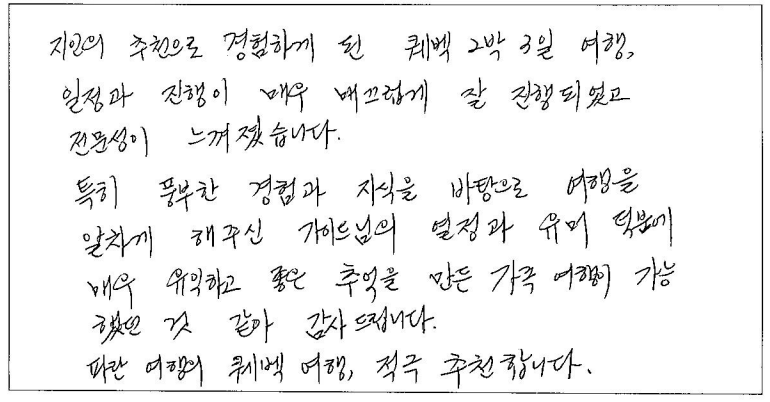 지인의 추천으로 경험하게 된 퀘벡 2박 3일 여행,
일정과 진행이 매우 매끄럽게 잘 진행되었고
전문성이 느껴졌습니다.
특히 풍부한 경험과 지식을 바탕으로 여행을
알차게 해주신 가이드님의 열정과 유머 덕분에
매우 유익하고 좋은 추억을 만든 가족 여행이 가능
했던 것 같아 감사드립니다.
파란 여행의 퀘벡 여행, 적극 추천합니다.